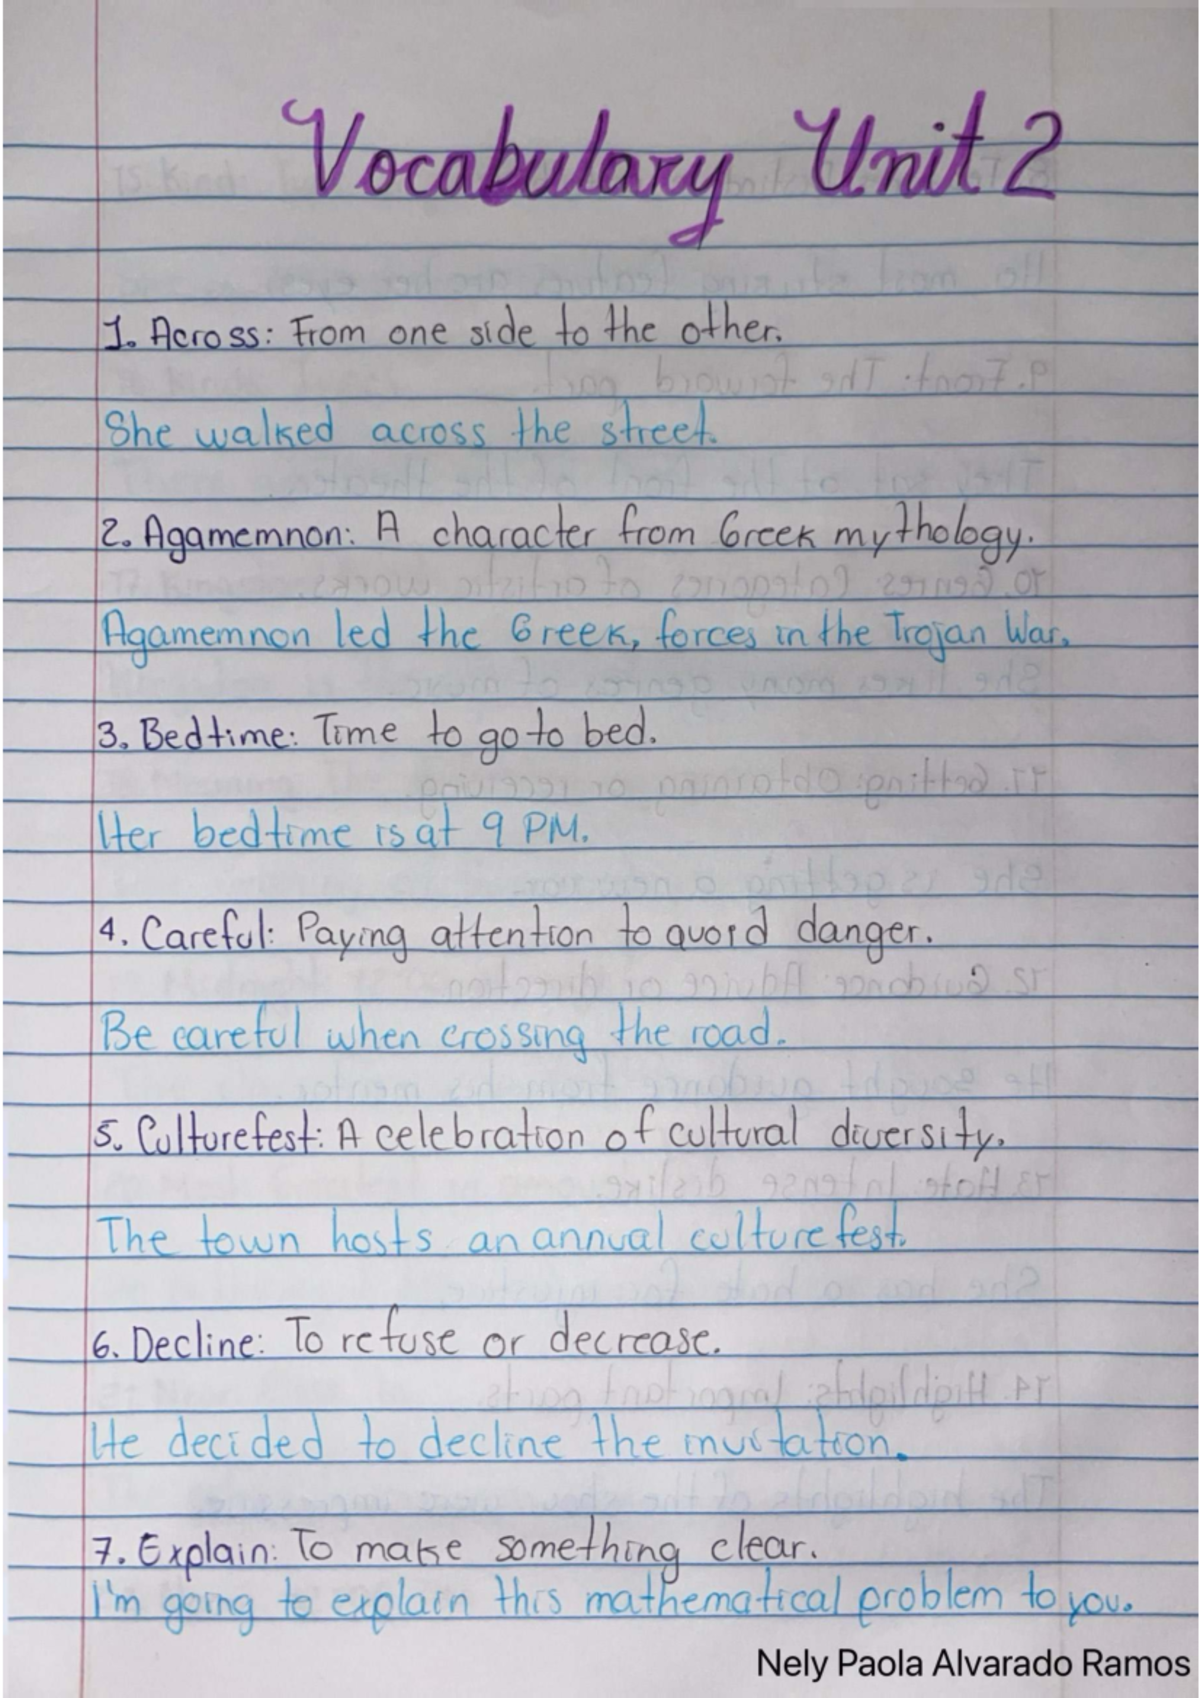 Vocabulary Unit 2
1. Across: From one side to the other.
She walked across the street.
2. Agamemnon: A character from Greek mythology.
Agamemnon led the Greek, forces in the Trojan War.
3. Bedtime: Time to go to bed.
Her bedtime is at 9 PM.
4. Careful: Paying attention to avoid danger.
Be careful when crossing the road.
5. Culturefest: A celebration of cultural diversity.
The town hosts an annual culturefest.
6. Decline: To refuse or decrease.
He decided to decline the invitation.
7. Explain: To make something clear.
I'm going to explain this mathematical problem to you.
Nely Paola Alvarado Ramos